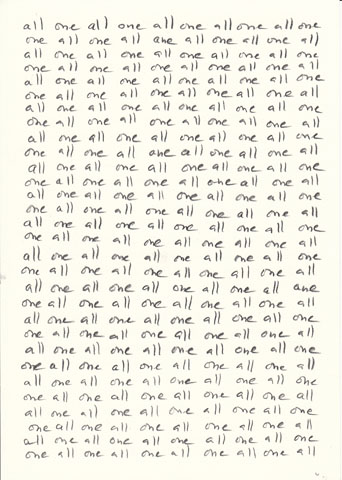 all one all one all one all one all one
one all one all one all one all one all
all one all one all one all one all one
one all one all one all one all one all
all one all one all one all one all one
one all one all one all one all one all
all one all one all one all one all one
one all one all one all one all one all
all one all one all one all one all one
one all one all one all one all one all
all one all one all one all one all one
one all one all one all one all one all
all one all one all one all one all one
one all one all one all one all one all
all one all one all one all one all one
one all one all one all one all one all
all one all one all one all one all one
one all one all one all one all one all
all one all one all one all one all one
one all one all one all one all one all
all one all one all one all one all one
one all one all one all one all one all
all one all one all one all one all one
one all one all one all one all one all
all one all one all one all one all one
one all one all one all one all one all
all one all one all one all one all one
one all one all one all one all one all
all one all one all one all one all one
one all one all one all one all one all